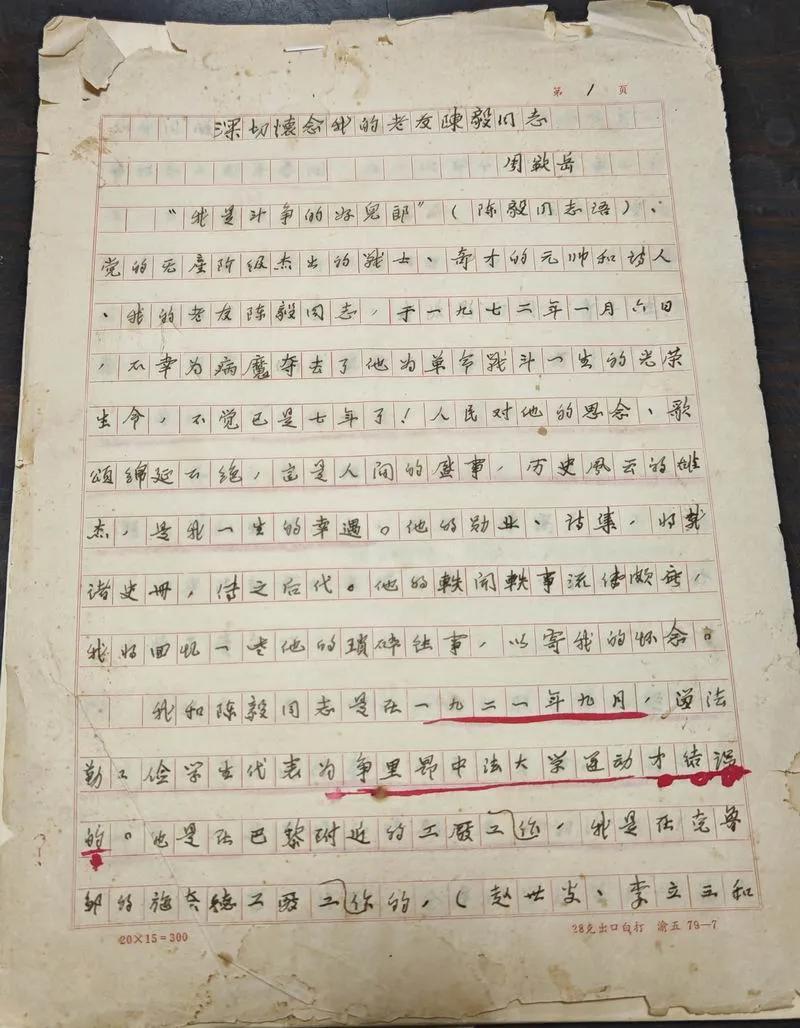 第 1 页
深切懷念我的老友陳毅同志
周欽岳
“我是斗争的好兒郎”（陈毅同志语）、
党的无產阶级杰出的战士、奇才的元帅和诗人
、我的老友陈毅同志，于一九七二年一月六日
，不幸为病魔夺去了他为革命战斗一生的光荣
生命，不觉已是七年了！人民对他的思念、歌
颂绵延不绝，这是人间的盛事，历史風云的雄
杰，是我一生的幸遇。他的勋业、诗集，将载
诸史册，传之后代。他的軼闻軼事流传颇广，
我将回忆一些他的瑣碎往事，以寄我的怀念。
我和陈毅同志是在一九二一年九月，留法
勤工俭学生代表为争里昂中法大学运动才结识
的。他是在巴黎附近的工厰工作，我是在克鲁
邹的施奈德工厰工作的，（赵世炎、李立三和
20×15=300
28克出口白打 渝五 79—7